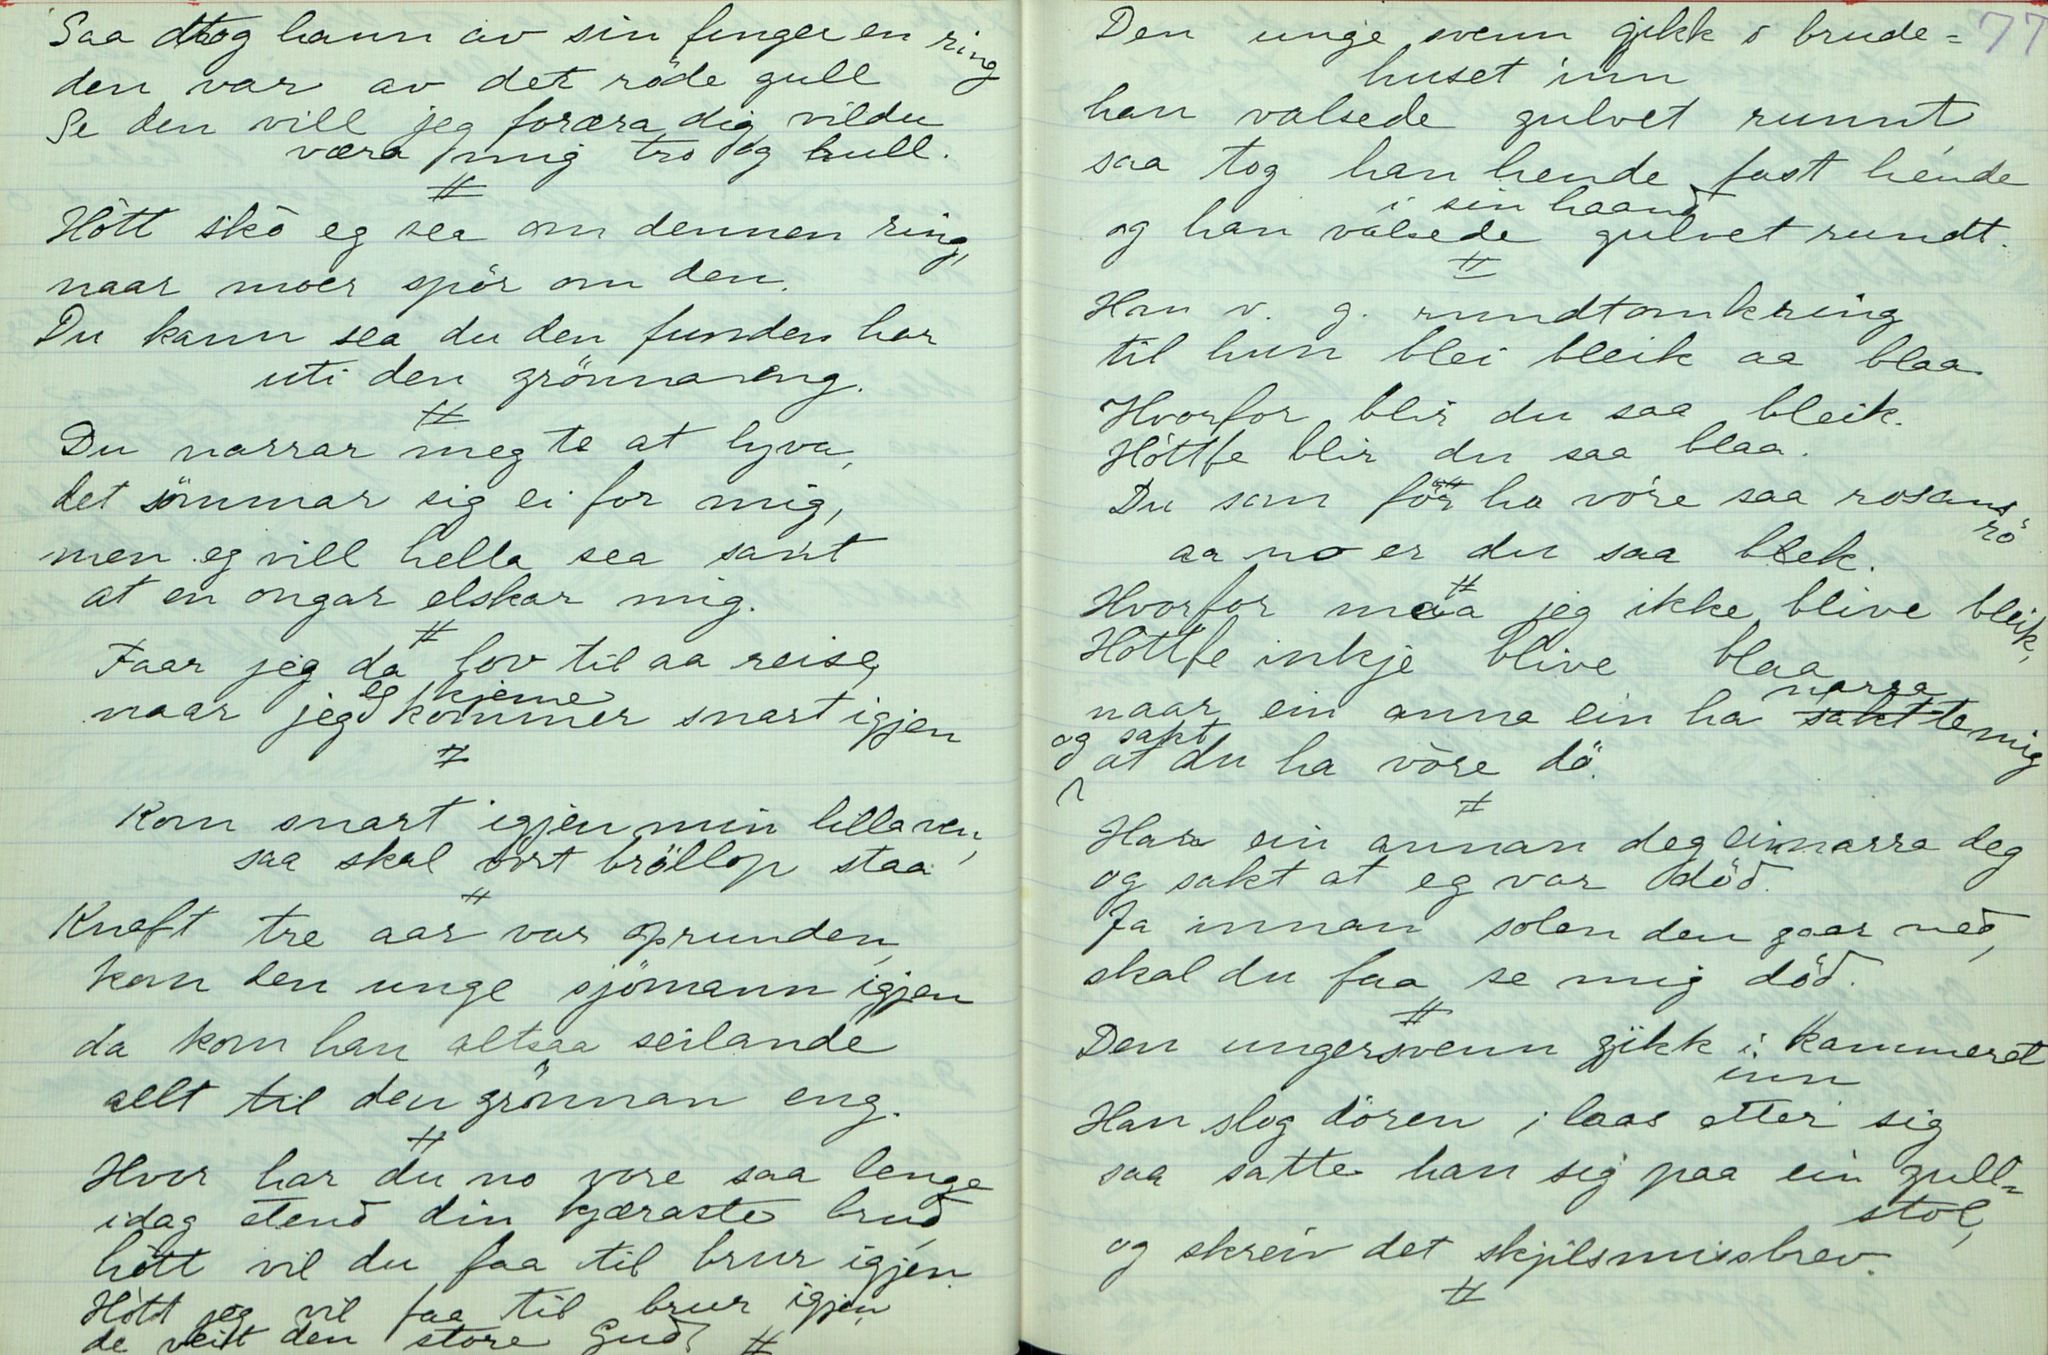 Saa tog hann av sin finger en ring
den var av det röde gull
Se den vill jeg foræra dig, vildu
væra mig tro og hull.
#
Hött skö eg sea om dennen ring,
naar moer spör om den.
Du kann sea du den funden har
uti den grönnaeng.
#
Du narrar meg te at lyva,
det sömmar sig ei for mig,
men eg vill hella sea sant
at en ongar elskar mig.
#
Faar jeg da lov til aa reise,
eg kjeme
naar jeg kommer snart igjen
#
Kom snart igjen min lilla ven,
saa skal vort bröllop staa
#
Knaft tre aar var oprunden,
kom den unge sjömann igjen
da kom han altsaa seilande
alt til den grönnan eng.
#
Hvor har du no vore saa lenge
idag stend din kjæraste brud,
hött vil du faa til brur igjen
Hött jeg vil faa til brur igjen,
de veit den store Gud #
77
Den unge svenn gjikk i brude=
huset inn
han valsede gulvet runnt
saa tog han hende fast hende
i sin haand
og han valsede gulvet rundt.
#
Han v. g. rundtomkring
til hun blei bleik aa blaa
Hvorfor blir du saa bleik.
Höttfe blir du saa blaa.
Du som för ha vöre saa rosans
rö
aa no er du saa blek.
#
Hvorfor maa jeg ikke blive bleik,
Höttfe inkje blive blaa
narra
naar ein anna ein ha sakt te mig
og sakt
at du ha vöre dö.
#
Har ein annan deg einarra deg
og sakt at eg var död.
Ja innan solen den gaar ned,
skal du faa se mig död.
#
Den ungersvenn gjikk i kammeret
inn
Han slog dören i laas etter sig
saa satte han sig paa ein gull=
stol,
og skreiv det skjilsmissbrev.
#